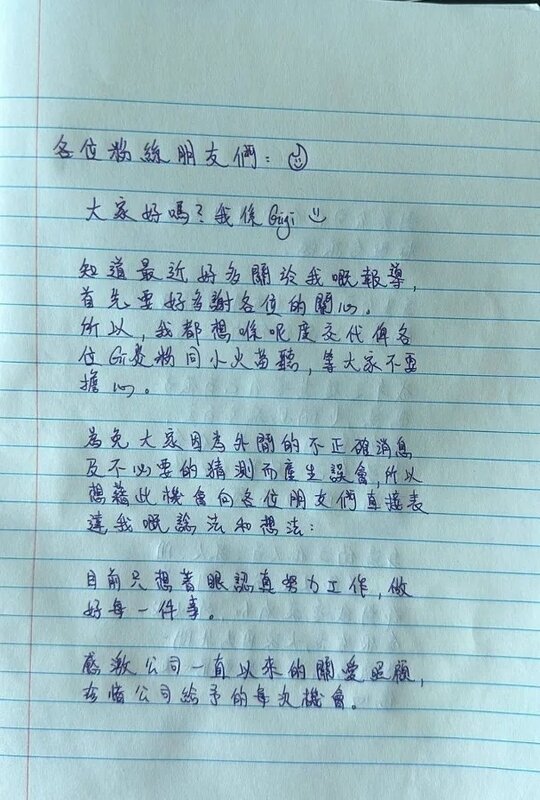 各位粉絲朋友們：
大家好嗎？我係Gigi
知道最近好多關於我嘅報導，
首先要好多謝各位的關心。
所以，我都想喺呢度交代俾各
位Gi愛粉同小火苗聽，等大家不要
擔心。
為免大家因為外間的不正確消息
及不必要的猜測而產生誤會，所以
想藉此機會向各位朋友們直接表
達我嘅諗法和想法：
目前只想着眼認真努力工作，做
好每一件事。
感激公司一直以來的關愛照顧，
珍惜公司給予的每次機會。